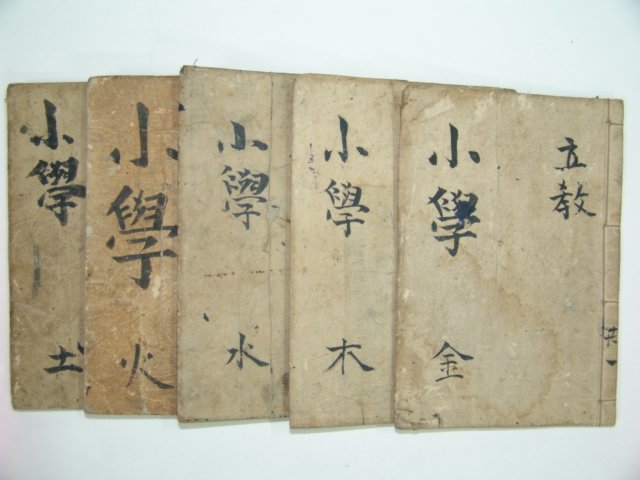 立教
共一
小學
金
小學
木
小學
水
小學
火
小學
土